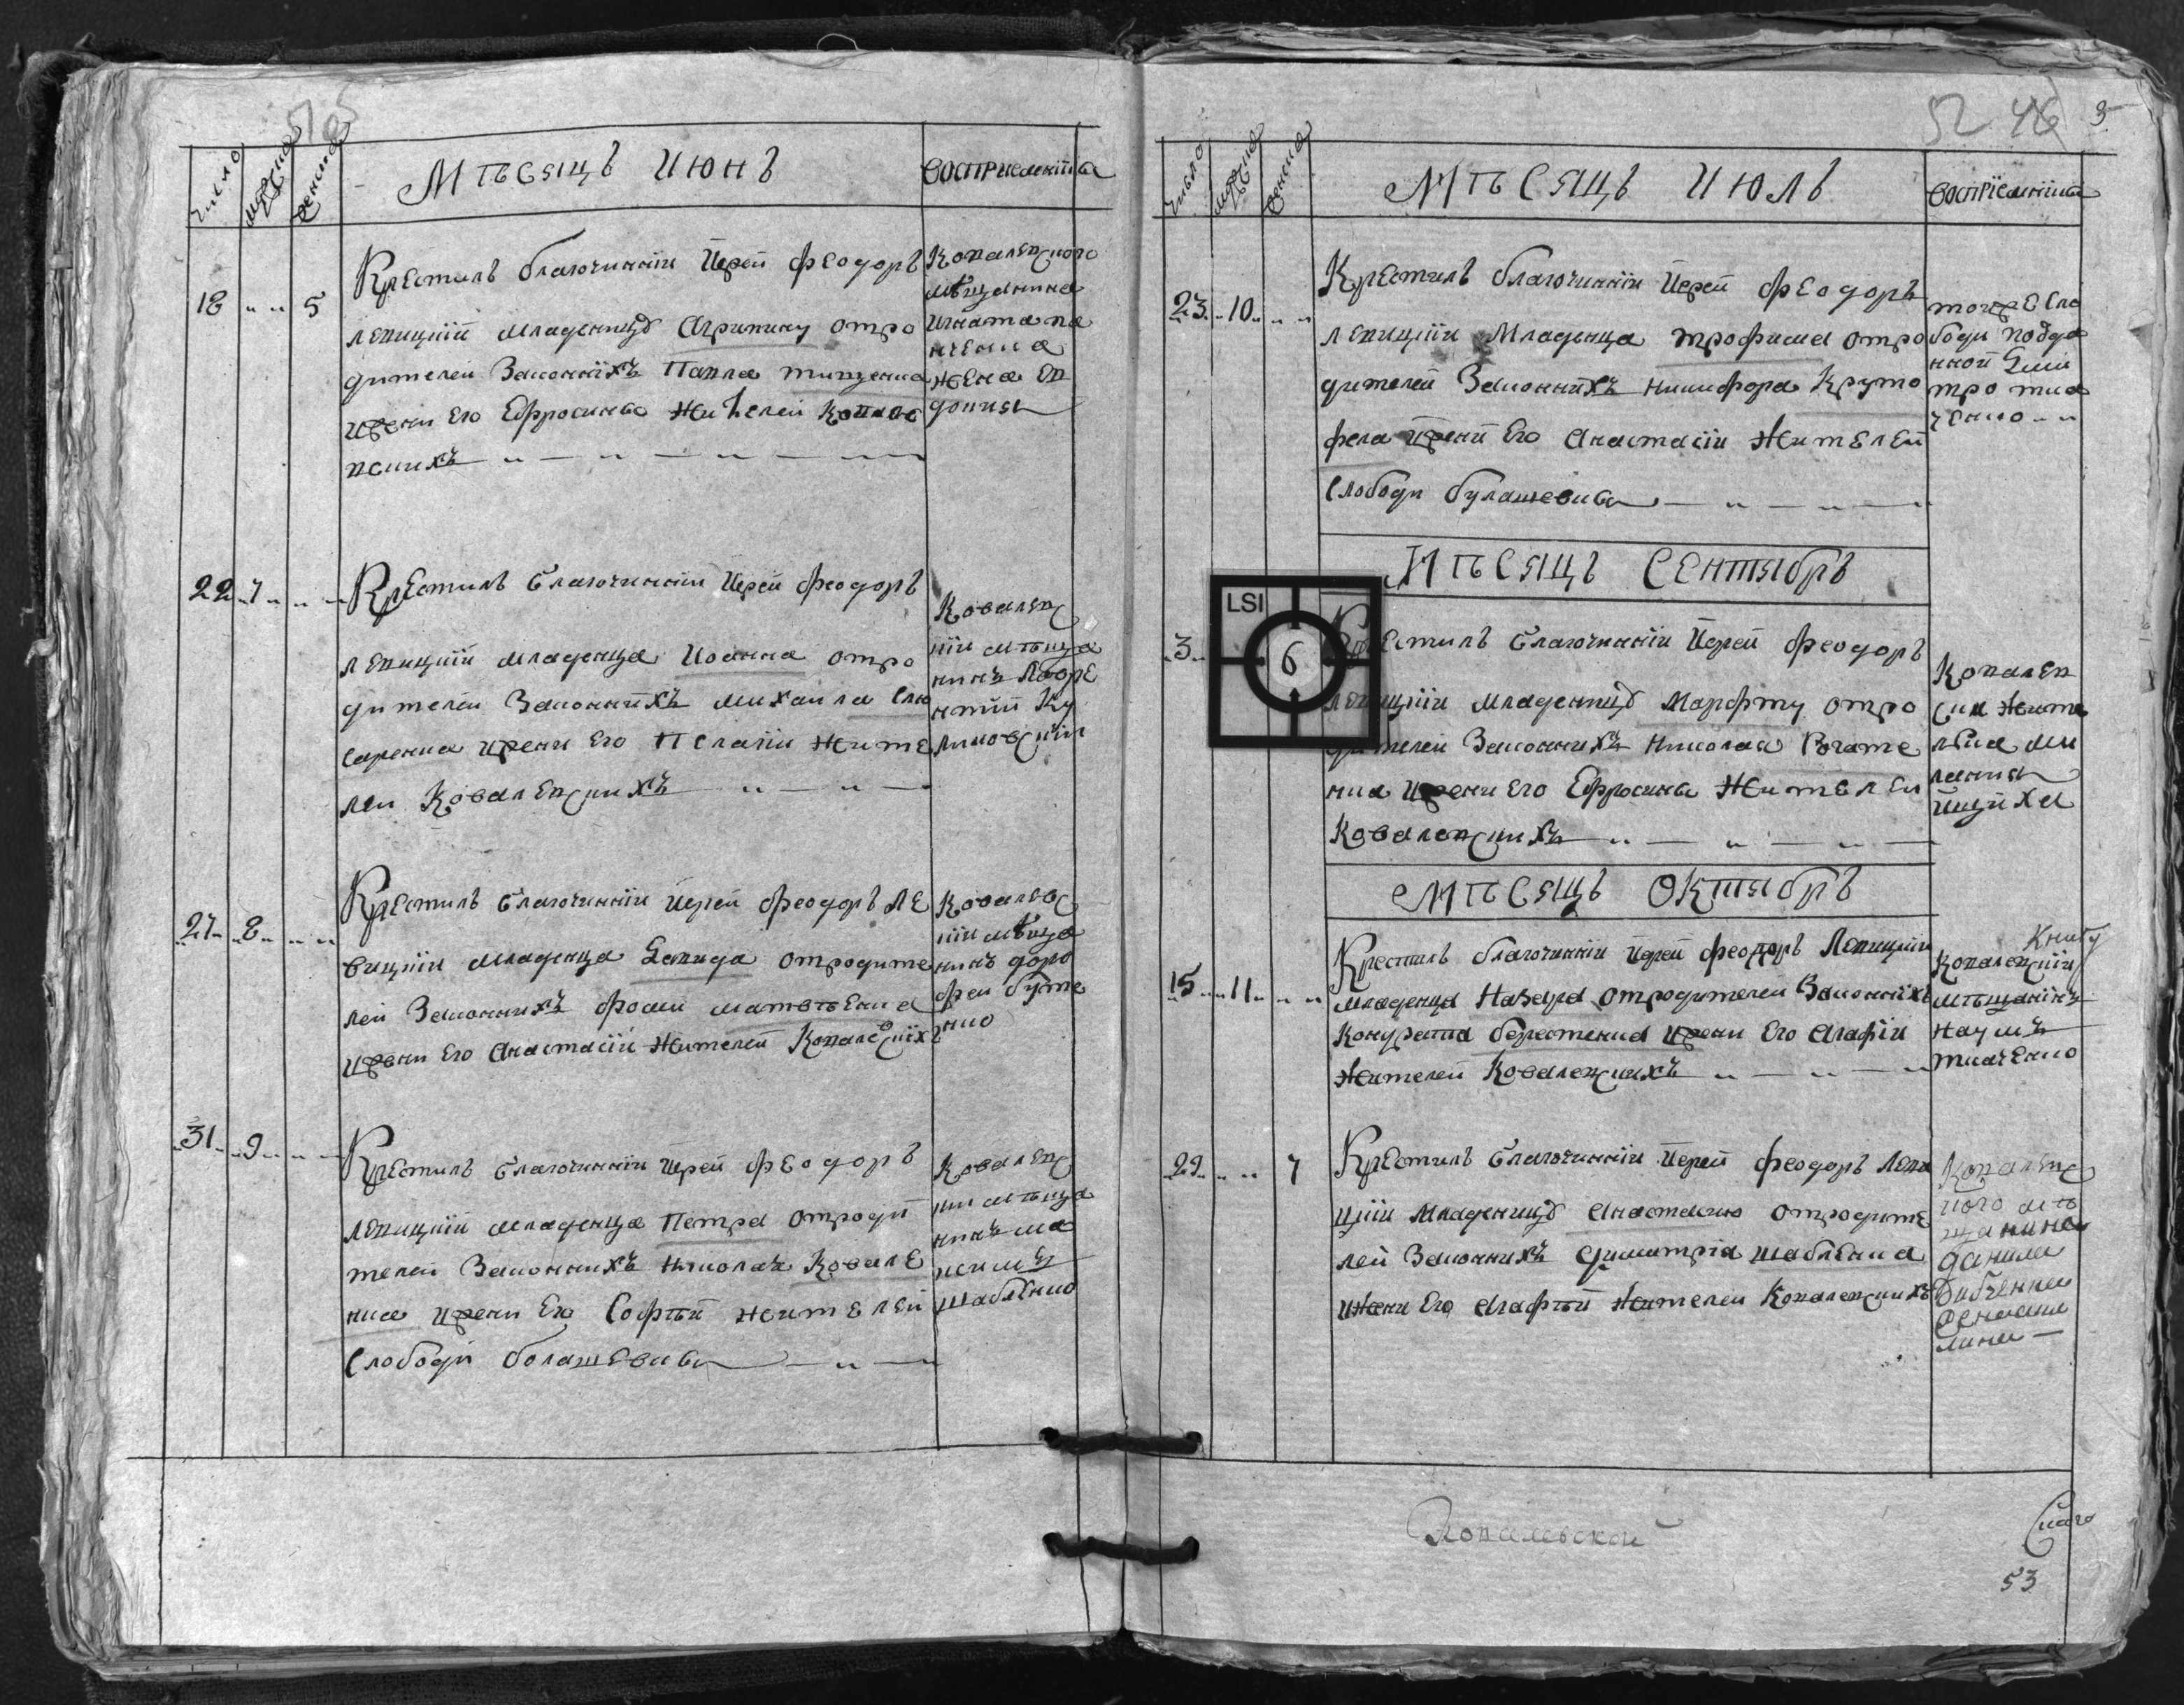 Число
мужеска
женска
Мѣсяцъ Июнь
восприемники
18 5
Крестилъ благочинній Иерей Феодоръ
левицкій младеницу Агрипину отро
дителей Законнихъ Павла тищенка
ижени его Ефросинѣ жителей Ковале
вскихъ
Ковалевского
мѣщанина
Игната па
нченка
жена ев
докия
22 7
Крестилъ благочинній Иерей Феодоръ
левицкій младенца Иоанна отро
дителей Законнихъ михаила слю
саренка ижени его Пелагіи жите
лей Ковалевскихъ
Ковалевс
кій мѣща
нинъ Лавре
нтій Ку
ликовскій
27 8
Крестилъ благочинній Иерей Феодоръ Ле
вицкій младенца Давида отродите
лей Законнихъ фоми матвѣенка
ижени его Анастасіи жителей Ковалевскихъ
Ковалевс
кій мѣща
нинъ доро
фей буте
нко
31 9
Крестилъ благочинній Иерей Феодоръ
левицкій младенца Петра отроди
телей Законнихъ николая Ковале
нка ижени его Софѣи жителей
слободи болашевки
Ковалевс
кій мѣща
нинъ ма
ксимъ
шабленко
52 46
Число
мужеска
женска
Мѣсяцъ Июль
восприемники
23 10
Крестилъ благочинній Иерей Феодоръ
левицкій Младенца трофима отро
дителей Законнихъ никифора Круто
фала ижени его Анастасіи жителей
слободи булашевки
тойже сло
боди подда
нной Дми
тро тка
ченко
Мѣсяцъ Сентябрь
LSI
6
3
Крестилъ благочинній Иерей Феодоръ
левицкій младеницу Марфту отро
дителей Законнихъ николая Рогате
нка ижени его Ефросинѣ жителей
Ковалевскихъ
Ковалев
ска жите
лька ме
лания
Мѣсяцъ Октябрь
15 11
Крестилъ благочинній Иерей Феодоръ Левицкій
младенца Назара отродителей Законнихъ
Кондрата берестенка ижени его Агафіи
жителей Ковалевскихъ
Ковалевскій
мѣщанинъ
наумъ
ткаченко
29 7
Крестилъ благочинній Иерей Феодоръ Леви
цкій Младеницу Анастасию отродите
лей Законнихъ димитрія шабленка
ижени его Агафѣи жителей Ковалевскихъ
Ковалевс
кого мѣ
щанина
данила
Ковалевской
53